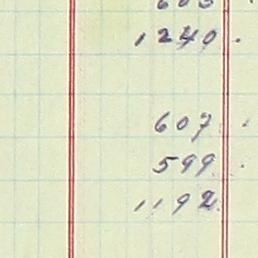 603
1240
607
599
1192